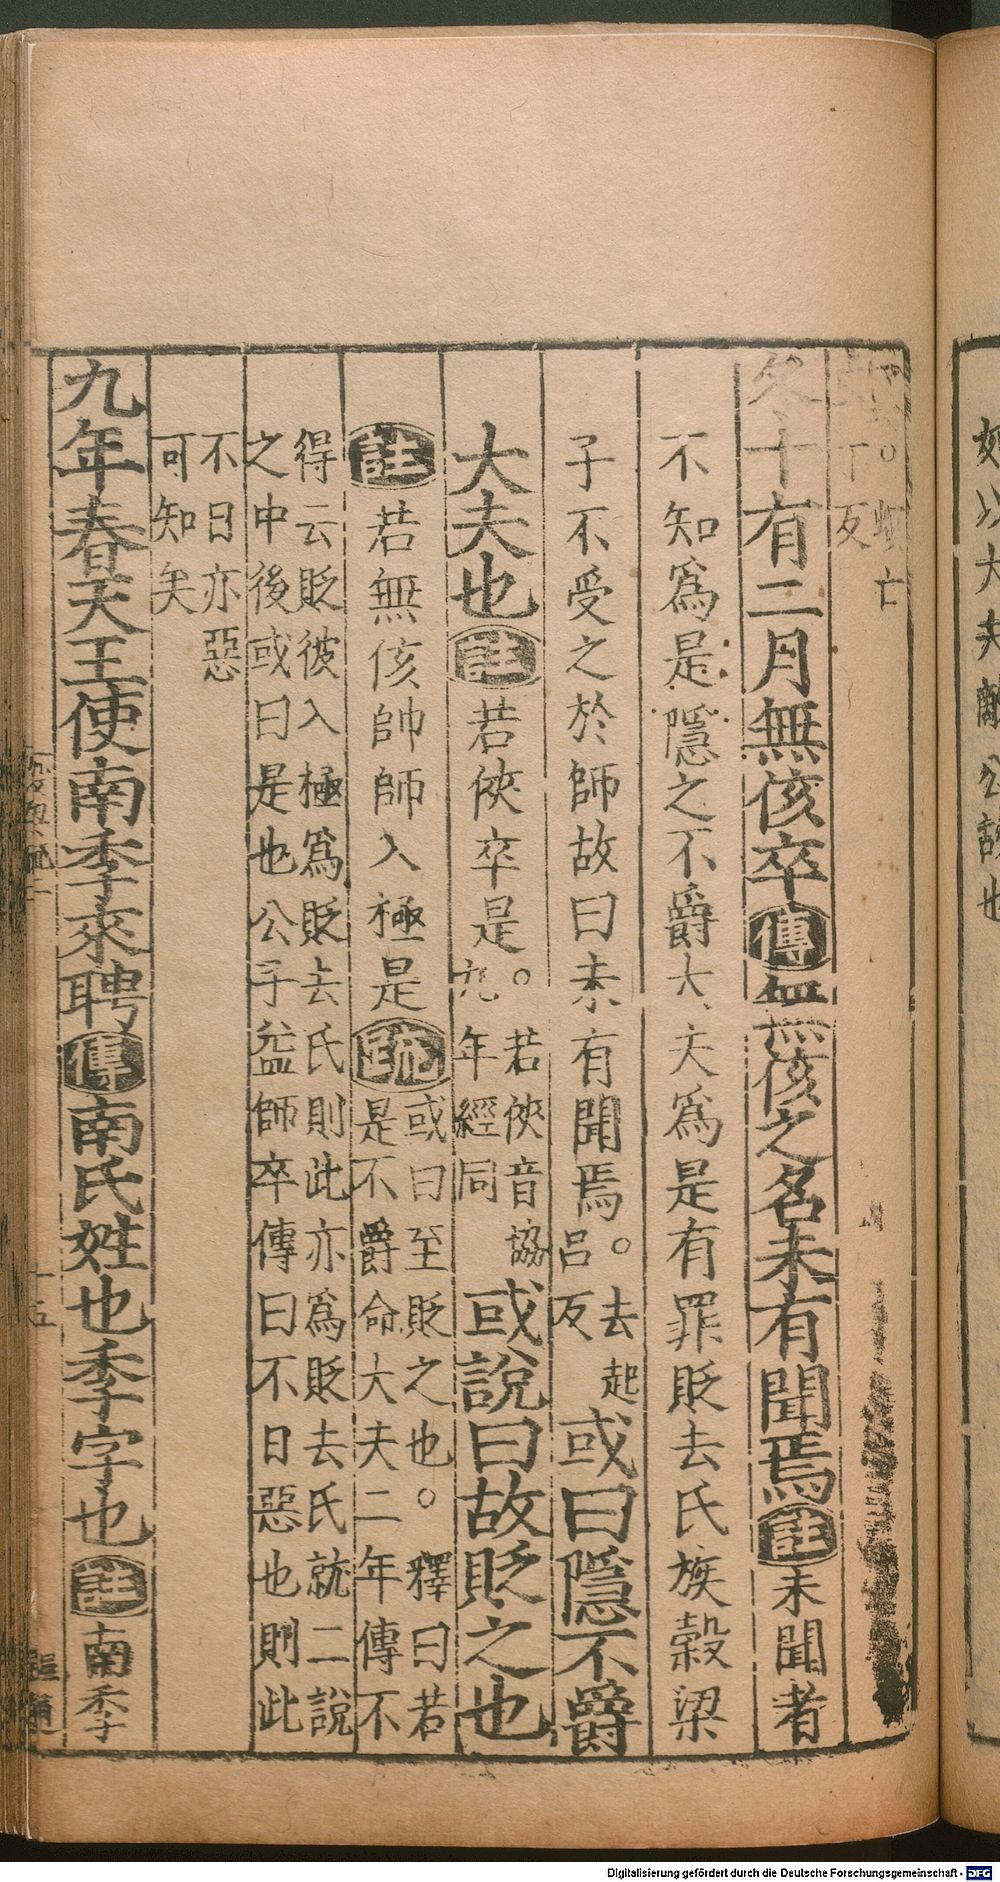 蚖亡
丁反
冬十有二月無侅卒傳無侅之名未有聞焉註未聞者
不知爲是隱之不爵大夫爲是有罪貶去氏族榖梁
子不受之於師故曰未有聞焉。去起
呂反
或曰隱不爵
大夫也註若俠卒是。若俠音協
九年經同
或說曰故貶之也
註若無侅帥師入極是疏或曰至貶之也。釋曰若
是不爵命大夫二年傳不
得云貶彼入極爲貶去氏則此亦爲貶去氏就二說
之中後或曰是也公子益師卒傳曰不日惡也則此
不日亦惡
可知矣
九年春天王使南季來聘傳南氏姓也季字也註南季
一五
如以大夫
公
也
Digitalisierung gefördert durch die Deutsche Forschungsgemeinschaft - DFG